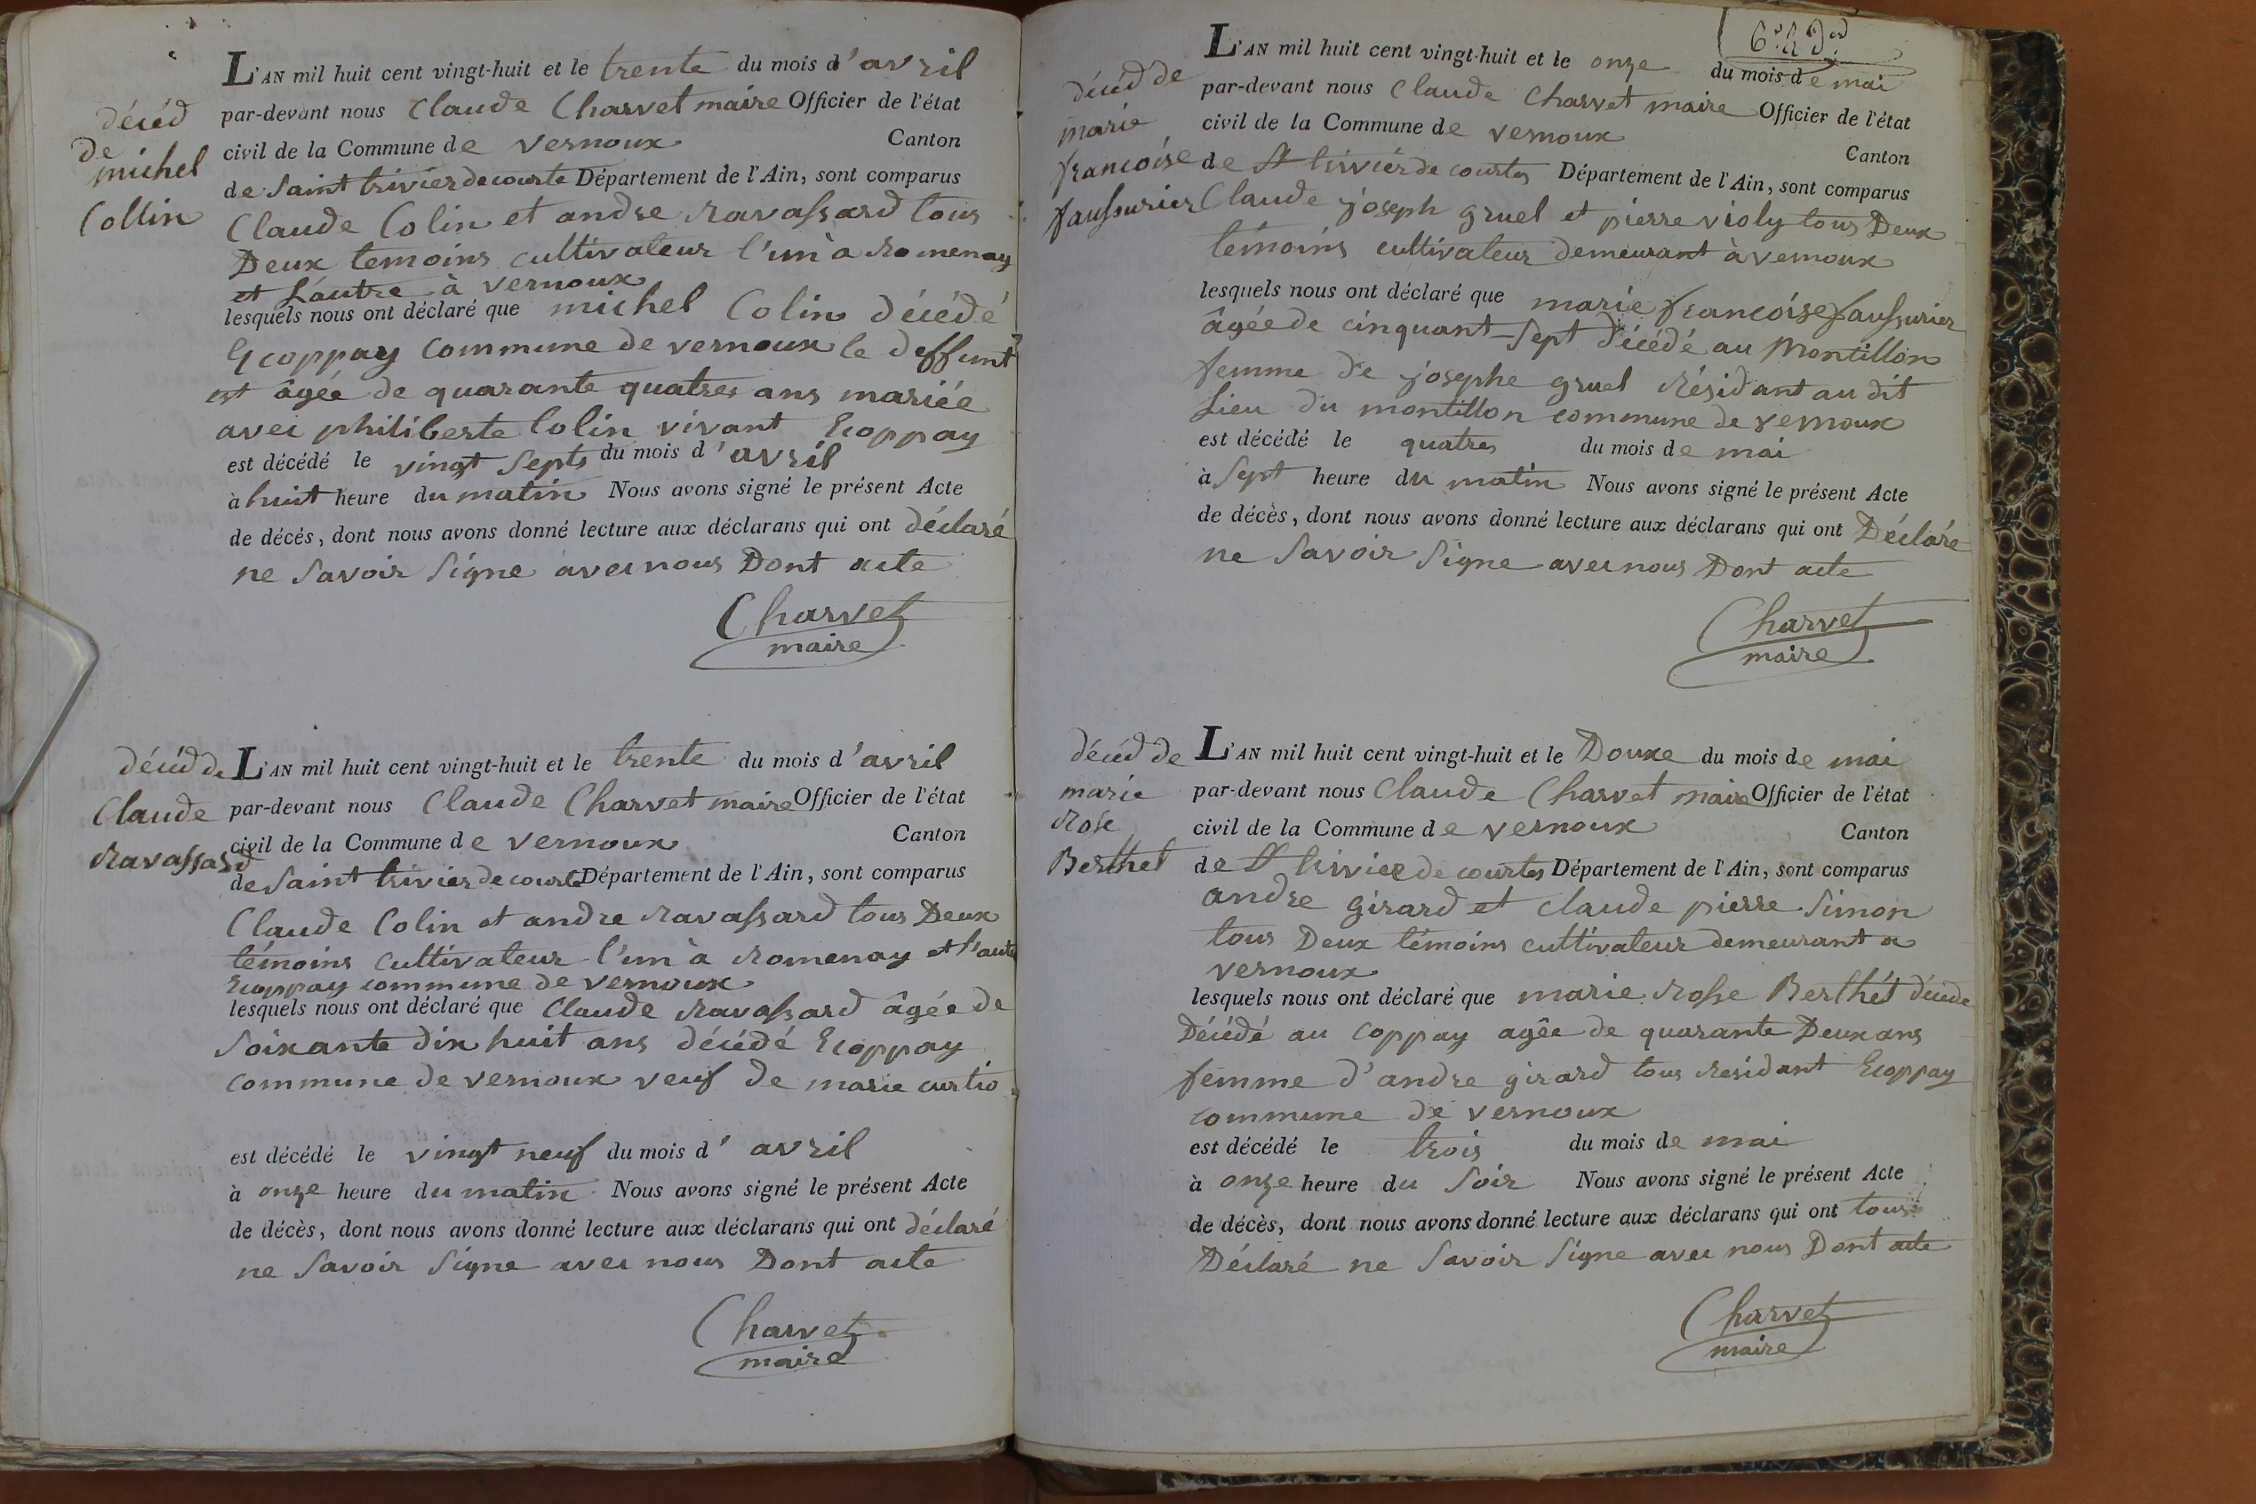 décéd
de
michel
Collin
L'AN mil huit cent vingt-huit et le trente du mois d'avril
par-devant nous Claude Charvet maire Officier de l'état
civil de la Commune de vernoux Canton
de Saint trivier de courte Département de l'Ain, sont comparus
Claude Colin et andre ravassard tous
Deux temoins cultivateur l'un à romenay
et L'autre à vernoux
lesquels nous ont déclaré que michel Colin décédé
Ecoppay commune de vernoux le deffunt
est âgée de quarante quatres ans mariée
avec philiberte Colin vivant Ecoppay
est décédé le vingt Septs du mois d'avril
à huit heure du matin Nous avons signé le présent Acte
de décés, dont nous avons donné lecture aux déclarans qui ont déclaré
ne Savoir Signe avec nous Dont acte
Charvet
maire
décéd de
Claude
ravassard
L'AN mil huit cent vingt-huit et le trente du mois d'avril
par-devant nous Claude Charvet maire Officier de l'état
civil de la Commune de vernoux Canton
de Saint trivier de courte Département de l'Ain, sont comparus
Claude Colin et andre ravassard tous Deux
témoins cultivateur l'un à romenay et l'autre
Ecoppay commune de vernoux
lesquels nous ont déclaré que Claude ravassard âgée de
Soixante dix huit ans décédé Ecoppay
commune de vernoux veuf de marie curtio
est décédé le vingt neuf du mois d'avril
à onze heure du matin Nous avons signé le présent Acte
de décès, dont nous avons donné lecture aux déclarans qui ont déclaré
ne Savoir Signe avec nous Dont acte
Charvet
maire
décéd de
marie
francoise
faussurier
L'AN mil huit cent vingt-huit et le onze du mois de mai
par-devant nous Claude Charvet maire Officier de l'état
civil de la Commune de vernoux Canton
de St trivier de courtes Département de l'Ain, sont comparus
Claude joseph gruel et pierre violy tous Deux
témoins cultivateur demeurant à vernoux
lesquels nous ont déclaré que marie francoise faussurier
âgée de cinquant-Sept décédé au Montillon
femme de josephe gruel résidant au dit
Lieu du montillon commune de vernoux
est décédé le quatres du mois de mai
à Sept heure du matin Nous avons signé le présent Acte
de décès, dont nous avons donné lecture aux déclarans qui ont Déclaré
ne Savoir Signe avec nous Dont acte
Charvet
maire
décéd de
marie
Rose
Berthet
L'AN mil huit cent vingt-huit et le Douxe du mois de mai
par-devant nous Claude Charvet maire Officier de l'état
civil de la Commune de vernoux Canton
de St trivier de courtes Département de l'Ain, sont comparus
andre girard et claude pierre Simon
tous Deux témoins cultivateur demeurant a
vernoux
lesquels nous ont déclaré que marie Rosse Berthét décéde
Décédé au coppay agêe de quarante Deux ans
femme d'andre girard tous residant Ecoppay
commune de vernoux
est décédé le trois du mois de mai
à onze heure du Soir Nous avons signé le présent Acte
de décès, dont nous avons donné lecture aux déclarans qui ont tous
Déclaré ne Savoir Signe avec nous Dont acte
Charvet
maire